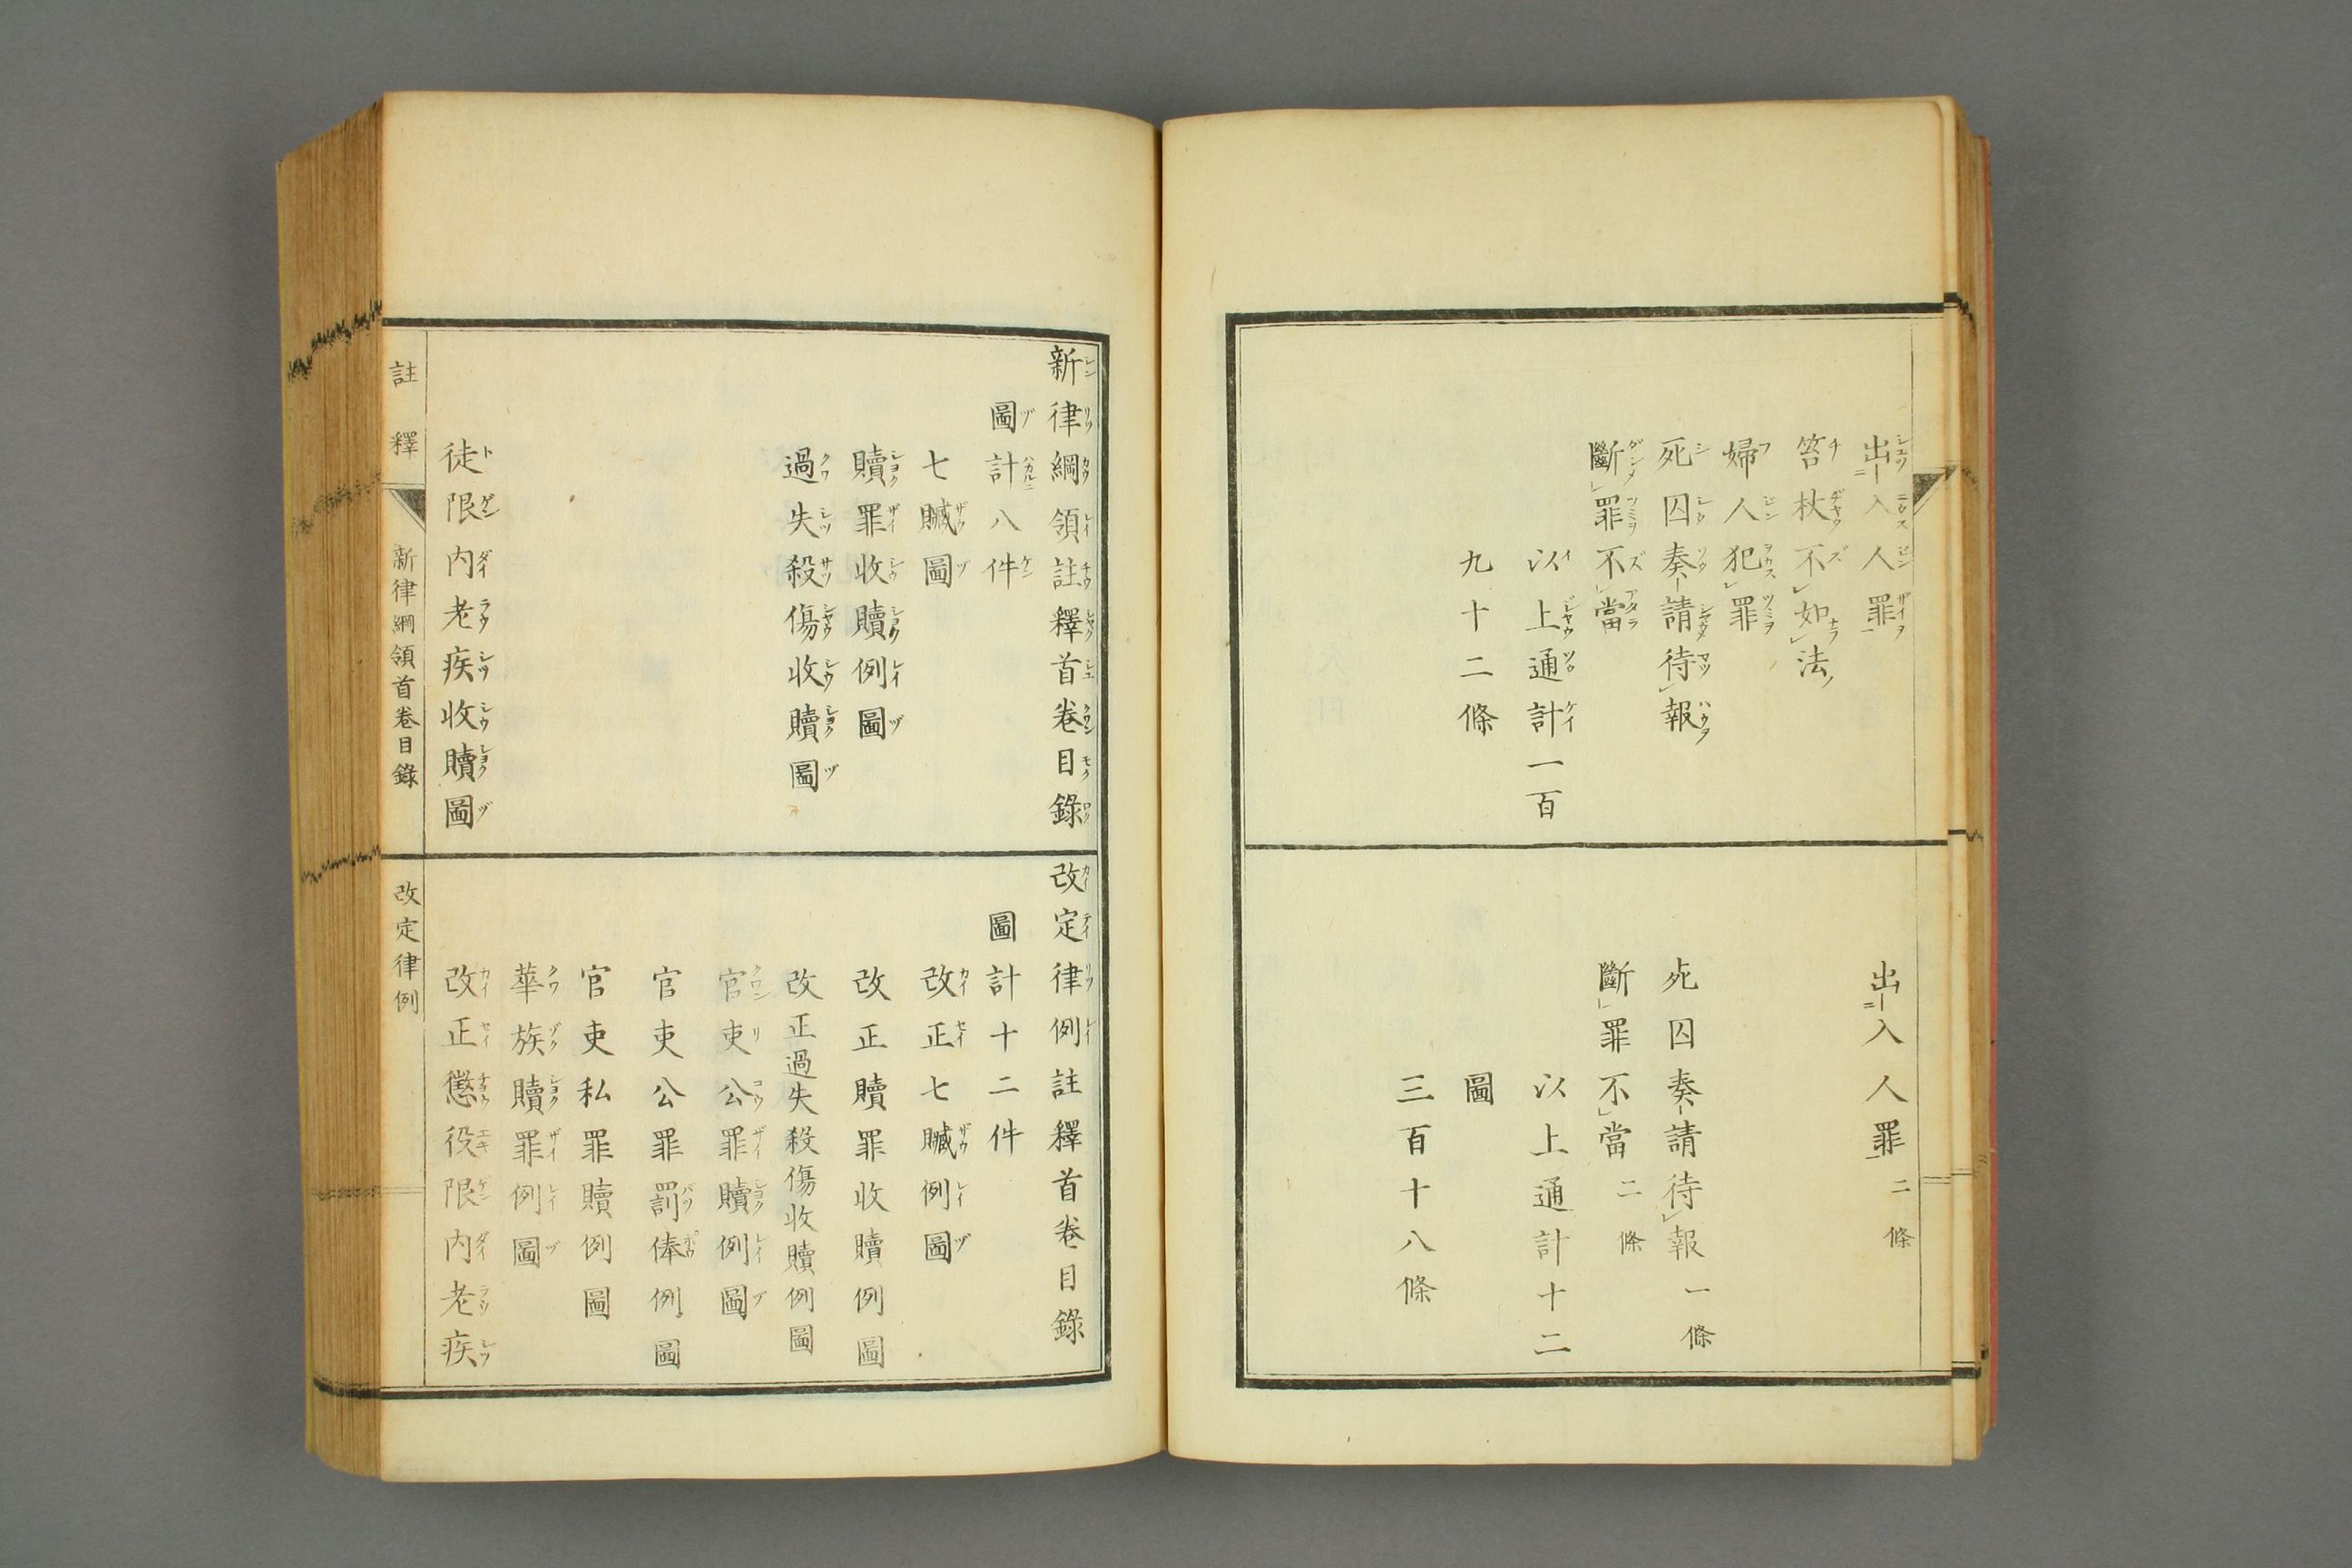 出入人罪
笞杖不如法
婦人犯罪
死囚奏請待報
斷罪不當
以上通計一百
九十二條
出入人罪二條
死囚奏請待報一條
斷罪不當二條
以上通計十二
圖
三百十八條
新律綱領註釋首卷目錄
圖計八件
七贓圖
贖罪收贖例圖
過失殺傷收贖圖
徒限内老疾收贖圖
改定律例註釋首卷目錄
圖計十二件
改正七贓例圖
改正贖罪收贖例圖
改正過失殺傷收贖例圖
官吏公罪贖例圖
官吏公罪罰俸例圖
官吏私罪贖例圖
華族贖罪例圖
改正懲役限内老疾
註釋 新律綱領首卷目錄 改定律例